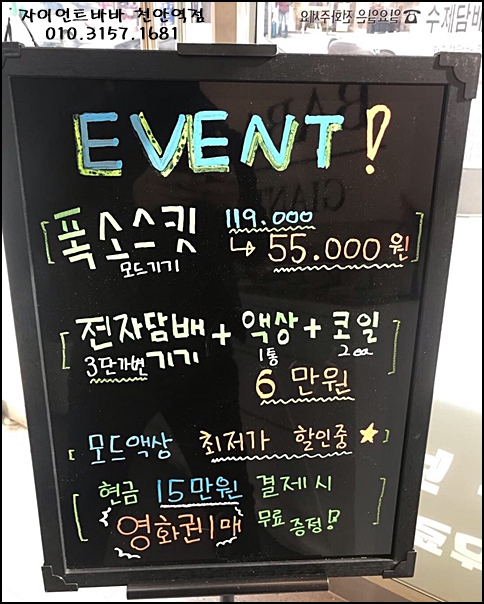 자이언트바바 천안역점
010.3157.1681
일요일은 전화주세요
☎ 수제담배
EVENT!
[폭스스킷 119.000
모드기기 ↳ 55.000원]
[전자담배 + 액상 + 코일]
3단가변 기기 1통 2ea
6만원
[모드액상 최저가 할인중★]
[현금 15만원 결제시
영화권1매 무료증정!]
BAB
GIANT